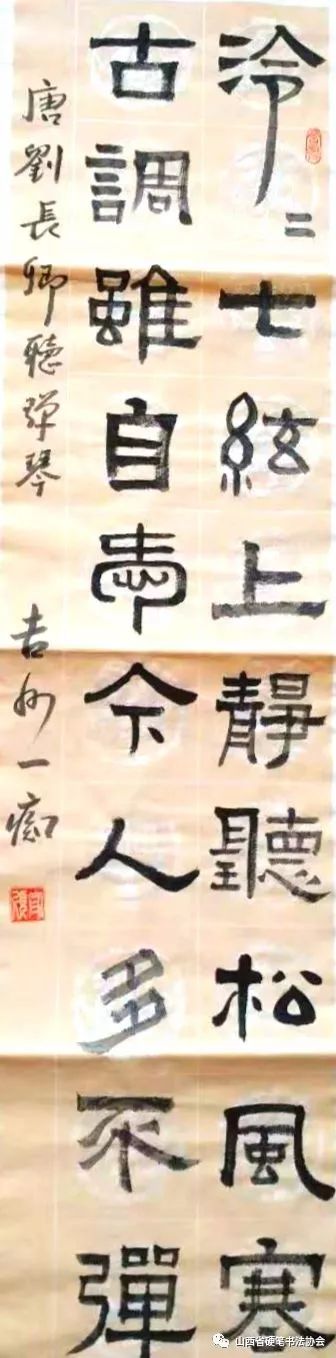 泠二七絃上靜聽松風寒
古調雖自愛今人多不彈
唐劉長卿聽彈琴 吉州一痴
山西省硬笔书法协会